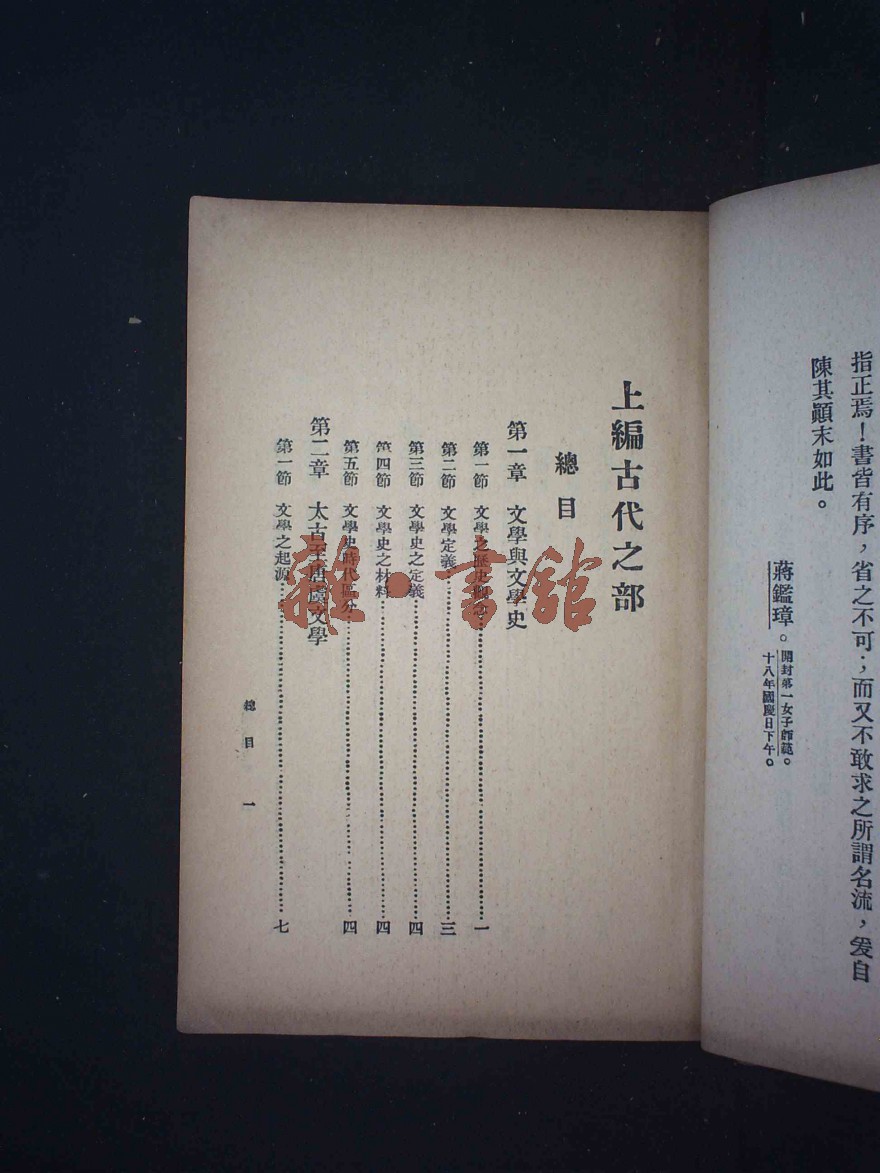 指正焉！書皆有序，省之不可；而又不敢求之所謂名流，爰自
陳其顚末如此。
蔣鑑璋。開封第一女子師範。
十八年國慶日下午。
上編古代之部
總目
第一章　文學與文學史
第一節　文學之歷史……一
第二節　文學定義……三
第三節　文學史之定義……四
第四節　文學史之材料……四
第五節　文學史時代區分……四
第二章　太古至唐虞文學
第一節　文學之起源……七
總目　一
雜·書館